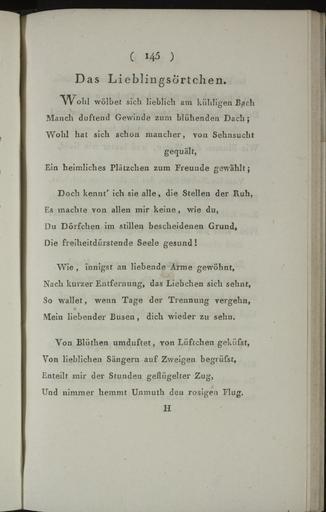 ( 145 )
Das Lieblingsörtchen.
Wohl wölbet sich lieblich am kühligen Bach
Manch duftend Gewinde zum blühenden Dach;
Wohl hat sich schon mancher, von Sehnsucht
gequält,
Ein heimliches Plätzchen zum Freunde gewählt;
Doch kennt' ich sie alle, die Stellen der Ruh,
Es machte von allen mir keine, wie du,
Du Dörfchen im stillen bescheidenen Grund,
Die freiheitdürstende Seele gesund!
Wie, innigst an liebende Arme gewöhnt,
Nach kurzer Entfernung, das Liebchen sich sehnt,
So wallet, wenn Tage der Trennung vergehn,
Mein liebender Busen, dich wieder zu sehn.
Von Blüthen umduftet, von Lüftchen geküfst,
Von lieblichen Sängern auf Zweigen begrüfst,
Enteilt mir der Stunden geflügelter Zug,
Und nimmer hemmt Unmuth den rosigen Flug.
H